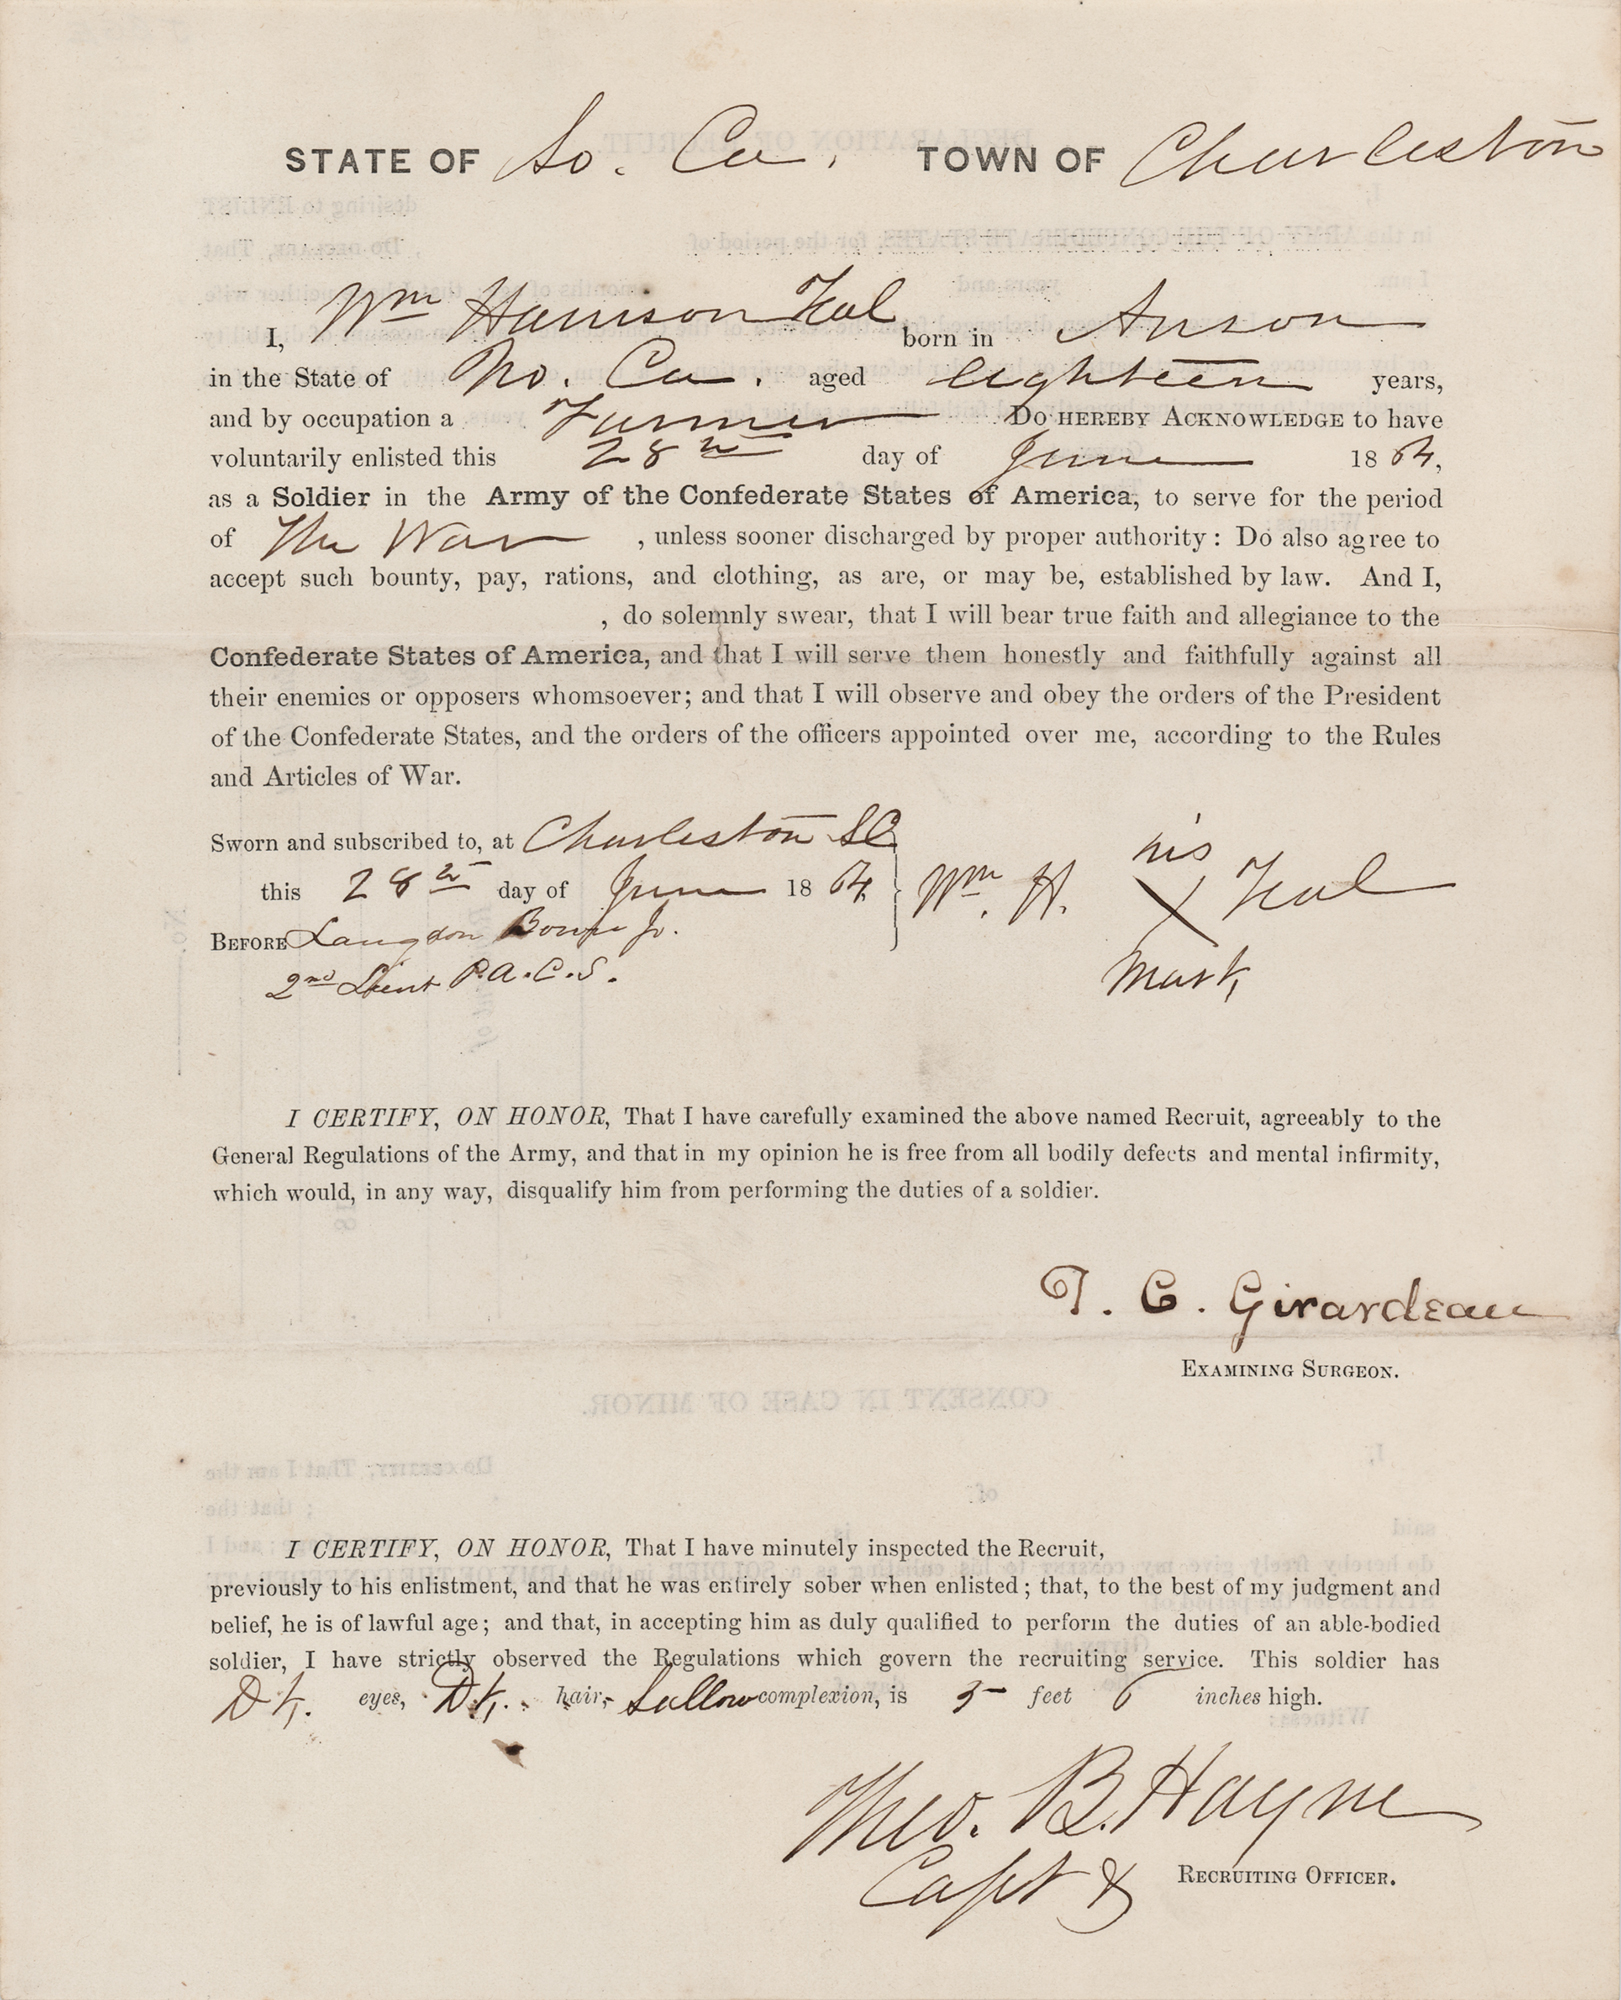 STATE OF So. Ca. TOWN OF Charleston
I, Wm Harrison Teal born in Anson
in the State of No. Ca. aged eighteen years,
and by occupation a Farmer DO HEREBY ACKNOWLEDGE to have
voluntarily enlisted this 28th day of June 1864,
as a Soldier in the Army of the Confederate States of America, to serve for the period
of The War , unless sooner discharged by proper authority: Do also agree to
accept such bounty, pay, rations, and clothing, as are, or may be, established by law. And I,
, do solemnly swear, that I will bear true faith and allegiance to the
Confederate States of America, and that I will serve them honestly and faithfully against all
their enemies or opposers whomsoever; and that I will observe and obey the orders of the President
of the Confederate States, and the orders of the officers appointed over me, according to the Rules
and Articles of War.
Sworn and subscribed to, at Charleston SC
this 28th day of June 1864
BEFORE Langdon Bowie Jr.
2nd Lieut P.A.C.S.
his
Wm. H. X Teal
Mark
I CERTIFY, ON HONOR, That I have carefully examined the above named Recruit, agreeably to the
General Regulations of the Army, and that in my opinion he is free from all bodily defects and mental infirmity,
which would, in any way, disqualify him from performing the duties of a soldier.
T. C. Girardeau
EXAMINING SURGEON.
I CERTIFY, ON HONOR, That I have minutely inspected the Recruit,
previously to his enlistment, and that he was entirely sober when enlisted; that, to the best of my judgment and
belief, he is of lawful age; and that, in accepting him as duly qualified to perform the duties of an able-bodied
soldier, I have strictly observed the Regulations which govern the recruiting service. This soldier has
Dk. eyes, Dk. hair, Sallow complexion, is 5 feet 6 inches high.
Theo. B. Hayne
Capt & RECRUITING OFFICER.